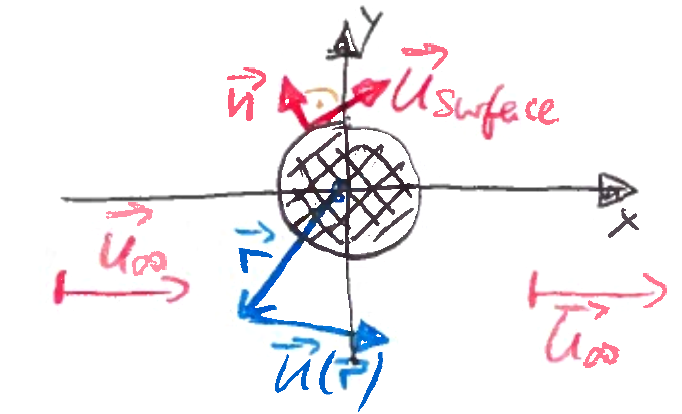 y
n⃗
u⃗ surface
x
u⃗∞
r⃗
u⃗∞
u⃗(r⃗)